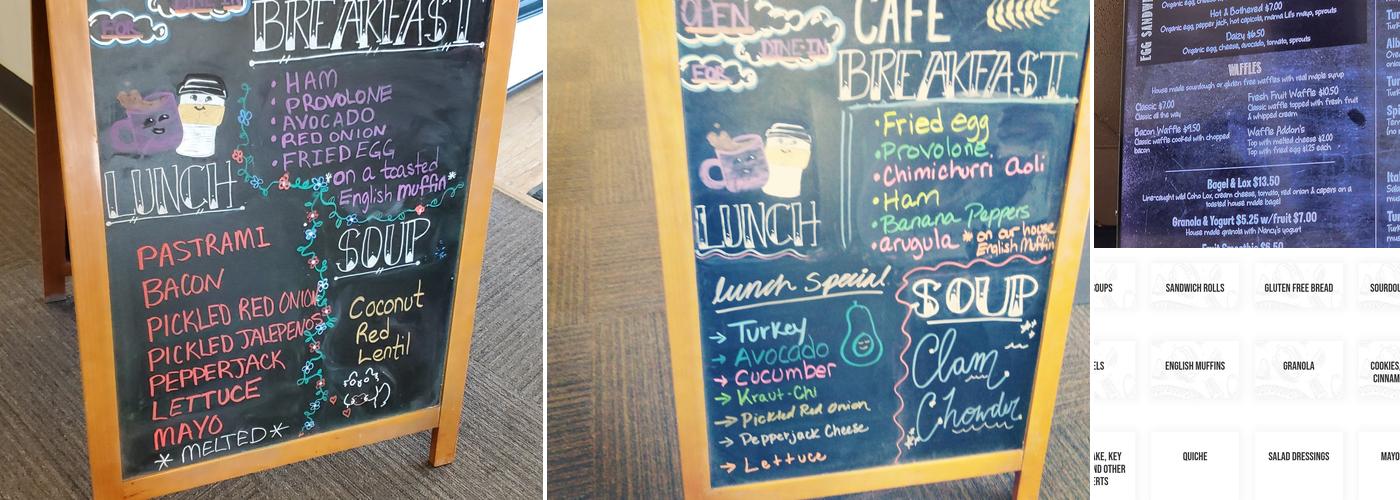 DINE-IN
FOR
BREAKFAST
• HAM
• PROVOLONE
• AVOCADO
• RED ONION
• FRIED EGG
*on a toasted
English muffin*
LUNCH
PASTRAMI
BACON
PICKLED RED ONION
PICKLED JALEPENOS
PEPPERJACK
LETTUCE
MAYO
* MELTED *
SOUP
Coconut
Red
Lentil
OPEN
DINE-IN
FOR
CAFE
BREAKFAST
• Fried egg
• Provolone
• Chimichurri aoli
• Ham
• Banana Peppers
• arugula * on our house
English Muffin
LUNCH
lunch Special
→ Turkey
→ Avocado
→ Cucumber
→ Kraut-Chi
→ Pickled Red Onion
→ Pepperjack Cheese
→ Lettuce
SOUP
Clam
Chowder
EGG SANDWI
Organic egg, cheese, avocado, tomato, sprouts
Hot & Bothered $7.00
Organic egg, pepper jack, hot capicola, mama Lil's mayo, sprouts
Daizy $6.50
Organic egg, cheese, avocado, tomato, sprouts
WAFFLES
House made sourdough or gluten free waffles with real maple syrup
Classic $7.00
Classic all the way
Bacon Waffle $9.50
Classic waffle cooked with chopped
bacon
Fresh Fruit Waffle $10.50
Classic waffle topped with fresh fruit
& whipped cream
Waffle Addon's
Top with melted cheese $2.00
Top with fried egg $1.25 each
Bagel & Lox $13.50
Line-caught wild Coho Lox, cream cheese, tomato, red onion & capers on a
toasted house made bagel
Granola & Yogurt $5.25 w/fruit $7.00
House made granola with Nancy's yogurt
Fruit Smoothie $6.50
OUPS
SANDWICH ROLLS
GLUTEN FREE BREAD
SOURDOU
ELS
ENGLISH MUFFINS
GRANOLA
COOKIES,
CINNAM
AKE, KEY
ND OTHER
ERTS
QUICHE
SALAD DRESSINGS
MAYO